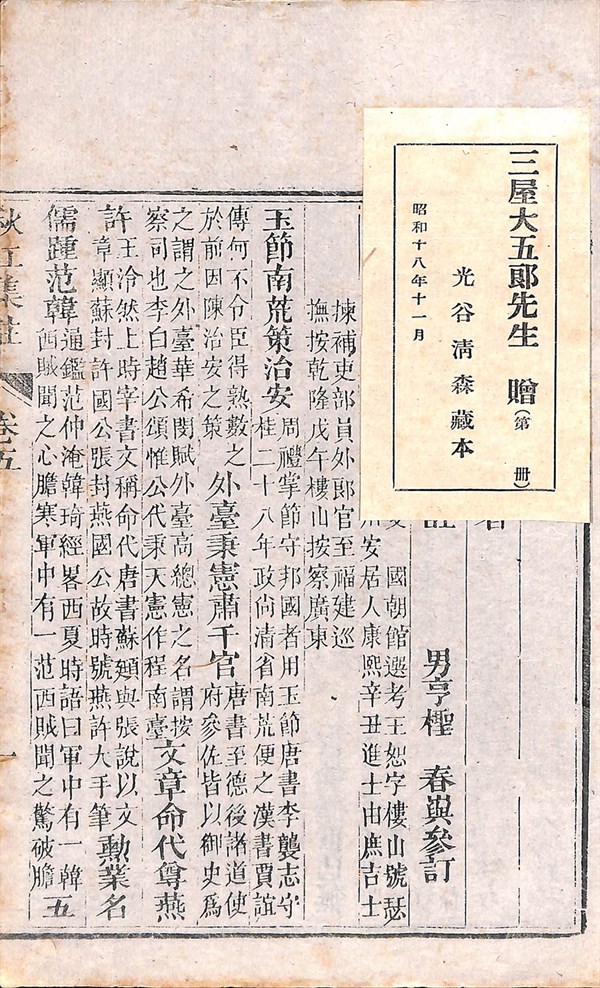 三屋大五郎先生 贈(第 冊)
光谷清森藏本
昭和十八年十一月
男亨 春 參訂
國朝館選考王恕字樓山號瑟
安居人康熙辛丑進士由庶吉士
揀補吏部員外郎官至福建巡
撫按乾隆戊午樓山按察廣東
玉節南荒策治安
周禮掌節守邦國者用玉節唐書李襲志守
桂二十八年政尚清省南荒便之漢書賈誼
傳何不令臣得熟數之
於前因陳治安之策
外臺秉憲肅千官
唐書至德後諸道使
府參佐皆以御史爲
之謂之外臺華希閔賦外臺高總憲之名謂按
察司也李白趙公頌惟公代秉天憲作程南臺
文章命代尊燕
許
王泠然上時宰書文稱命代唐書蘇頲與張說以文
章顯蘇封許國公張封燕國公故時號燕許大手筆
勲業名
儒踵范韓
通鑑范仲淹韓琦經畧西夏時語曰軍中有一韓
西賊聞之心膽寒軍中有一范西賊聞之驚破膽
五
秋江集註
卷五
一